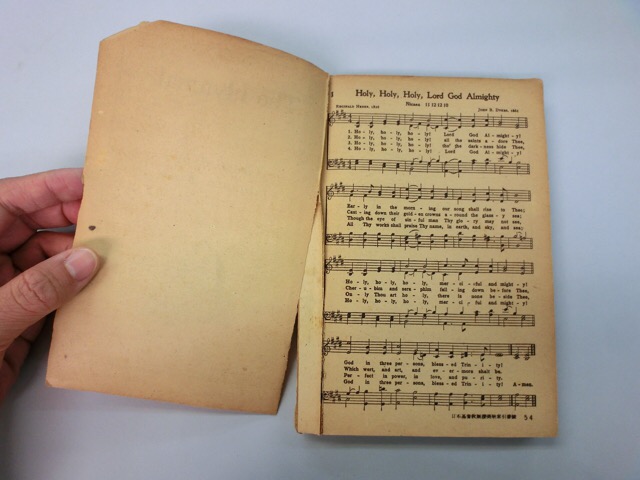 1
Holy, Holy, Holy, Lord God Almighty
Nicæa 11 12 12 10
Reginald Heber, 1826
John B. Dykes, 1861
1. Ho - ly, ho - ly, ho - ly! Lord God Al - might - y!
2. Ho - ly, ho - ly, ho - ly! all the saints a - dore Thee,
3. Ho - ly, ho - ly, ho - ly! tho' the dark - ness hide Thee,
4. Ho - ly, ho - ly, ho - ly! Lord God Al - might - y!
Ear - ly in the morn - ing our song shall rise to Thee;
Cast - ing down their gold - en crowns a - round the glass - y sea;
Though the eye of sin - ful man Thy glo - ry may not see,
All Thy works shall praise Thy name, in earth, and sky, and sea;
Ho - ly, ho - ly, ho - ly, mer - ci - ful and might - y!
Cher - u - bim and ser - a - phim fall - ing down be - fore Thee,
On - ly Thou art ho - ly, there is none be - side Thee,
Ho - ly, ho - ly, ho - ly, mer - ci - ful and might - y!
God in three per - sons, bless - ed Trin - i - ty!
Which wert, and art, and ev - er - more shalt be.
Per - fect in power, in love, and pu - ri - ty.
God in three per - sons, bless - ed Trin - i - ty! A - men.
54